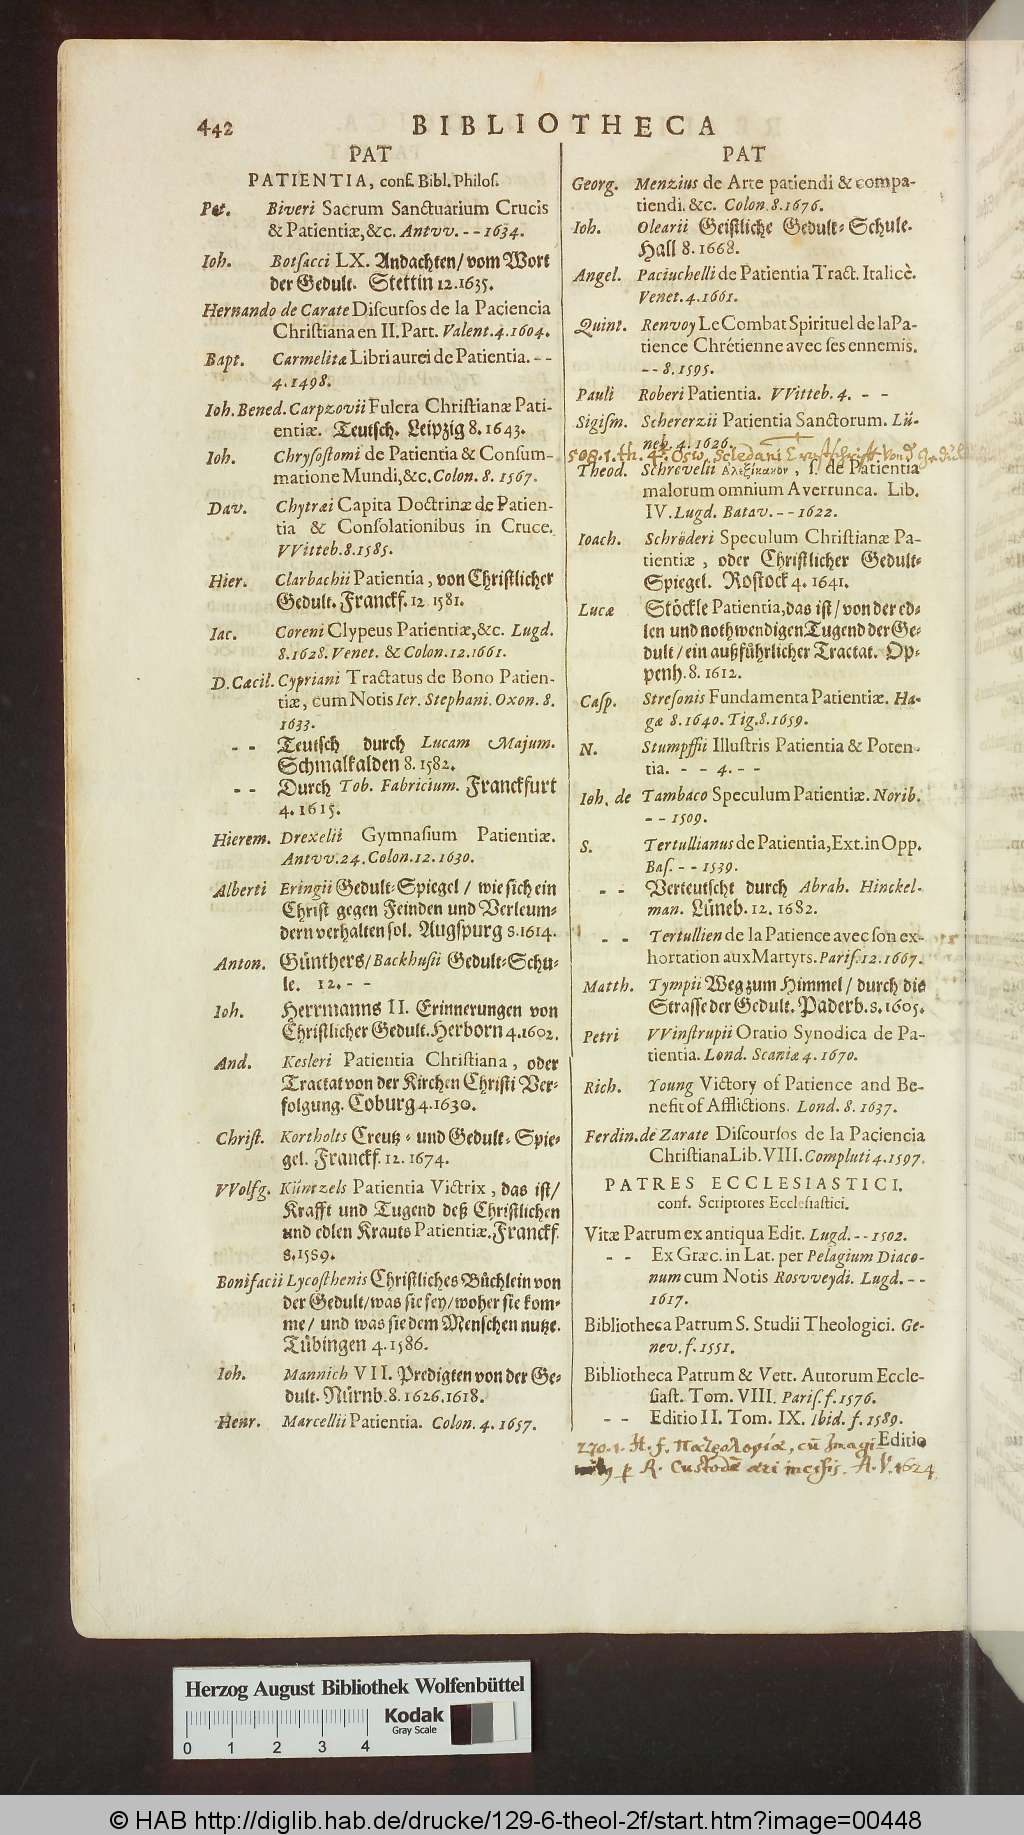 442 BIBLIOTHECA
PAT
PATIENTIA, conf. Bibl. Philos.
Pet. Biveri Sacrum Sanctuarium Crucis
& Patientiæ, &c. Antvv. - - 1634.
Ioh. Botsacci LX. Andachten / vom Wort
der Gedult. Stettin 12. 1635.
Hernando de Carate Discursos de la Paciencia
Christiana en II. Part. Valent. 4. 1604.
Bapt. Carmelitæ Libri aurei de Patientia. - -
4. 1498.
Ioh. Bened. Carpzovii Fulcra Christianæ Pati-
entiæ. Teutsch. Leipzig 8. 1643.
Ioh. Chrysostomi de Patientia & Consum-
matione Mundi, &c. Colon. 8. 1567.
Dav. Chytræi Capita Doctrinæ de Patien-
tia & Consolationibus in Cruce.
VVitteb. 8. 1585.
Hier. Clarbachii Patientia, von Christlicher
Gedult. Franckf. 12 1581.
Iac. Coreni Clypeus Patientiæ, &c. Lugd.
8. 1628. Venet. & Colon. 12. 1661.
D. Cæcil. Cypriani Tractatus de Bono Patien-
tiæ, cum Notis Ier. Stephani. Oxon. 8.
1633.
- - Teutsch durch Lucam Majum.
Schmalkalden 8. 1582.
- - Durch Tob. Fabricium. Franckfurt
4. 1615.
Hierem. Drexelii Gymnasium Patientiæ.
Antvv. 24. Colon. 12. 1630.
Alberti Eringii Gedult-Spiegel / wie sich ein
Christ gegen Feinden und Verleum-
dern verhalten sol. Augspurg 8. 1614.
Anton. Günthers / Backhusii Gedult-Schu-
le. 12. - -
Ioh. Herrmanns II. Erinnerungen von
Christlicher Gedult. Herborn 4. 1602.
And. Kesleri Patientia Christiana, oder
Tractat von der Kirchen Christi Ver-
folgung. Coburg 4. 1630.
Christ. Kortholts Creutz- und Gedult-Spie-
gel. Franckf. 12. 1674.
VVolfg. Küntzels Patientia Victrix, das ist /
Krafft und Tugend deß Christlichen
und edlen Krauts Patientiæ. Franckf.
8. 1589.
Bonifacii Lycosthenis Christliches Büchlein von
der Gedult / was sie sey / woher sie kom-
me / und was sie dem Menschen nutze.
Tübingen 4. 1586.
Ioh. Mannich VII. Predigten von der Ge-
dult. Nürnb. 8. 1626. 1618.
Henr. Marcellii Patientia. Colon. 4. 1657.
PAT
Georg. Menzius de Arte patiendi & compa-
tiendi. &c. Colon. 8. 1676.
Ioh. Olearii Geistliche Gedult-Schule.
Hall 8. 1668.
Angel. Paciuchelli de Patientia Tract. Italicè.
Venet. 4. 1661.
Quint. Renvoy Le Combat Spirituel de la Pa-
tience Chrétienne avec ses ennemis.
- - 8. 1595.
Pauli Roberi Patientia. VVitteb. 4. - -
Sigism. Schererzii Patientia Sanctorum. Lü-
neb. 4. 1626.
508.1. th. 4°. Osw. Seledani Trostschrifft von der gedult
Theod. Schrevelii Ἀλεξίκακον, s. de Patientia
malorum omnium Averrunca. Lib.
IV. Lugd. Batav. - - 1622.
Ioach. Schröderi Speculum Christianæ Pa-
tientiæ, oder Christlicher Gedult-
Spiegel. Rostock 4. 1641.
Lucæ Stöckle Patientia, das ist / von der ed-
len und nothwendigen Tugend der Ge-
dult / ein außführlicher Tractat. Op-
penh. 8. 1612.
Casp. Stresonis Fundamenta Patientiæ. Ha-
gæ 8. 1640. Tig. 8. 1659.
N. Stumpffii Illustris Patientia & Poten-
tia. - - 4. - -
Ioh. de Tambaco Speculum Patientiæ. Norib.
- - 1509.
S. Tertullianus de Patientia, Ext. in Opp.
Bas. - - 1539.
- - Verteutscht durch Abrah. Hinckel-
man. Lüneb. 12. 1682.
- - Tertullien de la Patience avec son ex-
hortation aux Martyrs. Paris. 12. 1667.
Matth. Tympii Weg zum Himmel / durch die
Strasse der Gedult. Paderb. 8. 1605.
Petri VVinstrupii Oratio Synodica de Pa-
tientia. Lond. Scaniæ 4. 1670.
Rich. Young Victory of Patience and Be-
nefit of Afflictions. Lond. 8. 1637.
Ferdin. de Zarate Discoursos de la Paciencia
Christiana Lib. VIII. Compluti 4. 1597.
PATRES ECCLESIASTICI.
conf. Scriptores Ecclesiastici.
Vitæ Patrum ex antiqua Edit. Lugd. - - 1502.
- - Ex Græc. in Lat. per Pelagium Diaco-
num cum Notis Rosvveydi. Lugd. - -
1617.
Bibliotheca Patrum S. Studii Theologici. Ge-
nev. f. 1551.
Bibliotheca Patrum & Vett. Autorum Eccle-
siast. Tom. VIII. Paris. f. 1576.
- - Editio II. Tom. IX. Ibid. f. 1589.
Editio
270.1. H. f. Πατρολογία, cū Imagi
p R. Custodē æri incisis. A. V. 1624
Herzog August Bibliothek Wolfenbüttel
Kodak
Gray Scale
0 1 2 3 4
© HAB http://diglib.hab.de/drucke/129-6-theol-2f/start.htm?image=00448